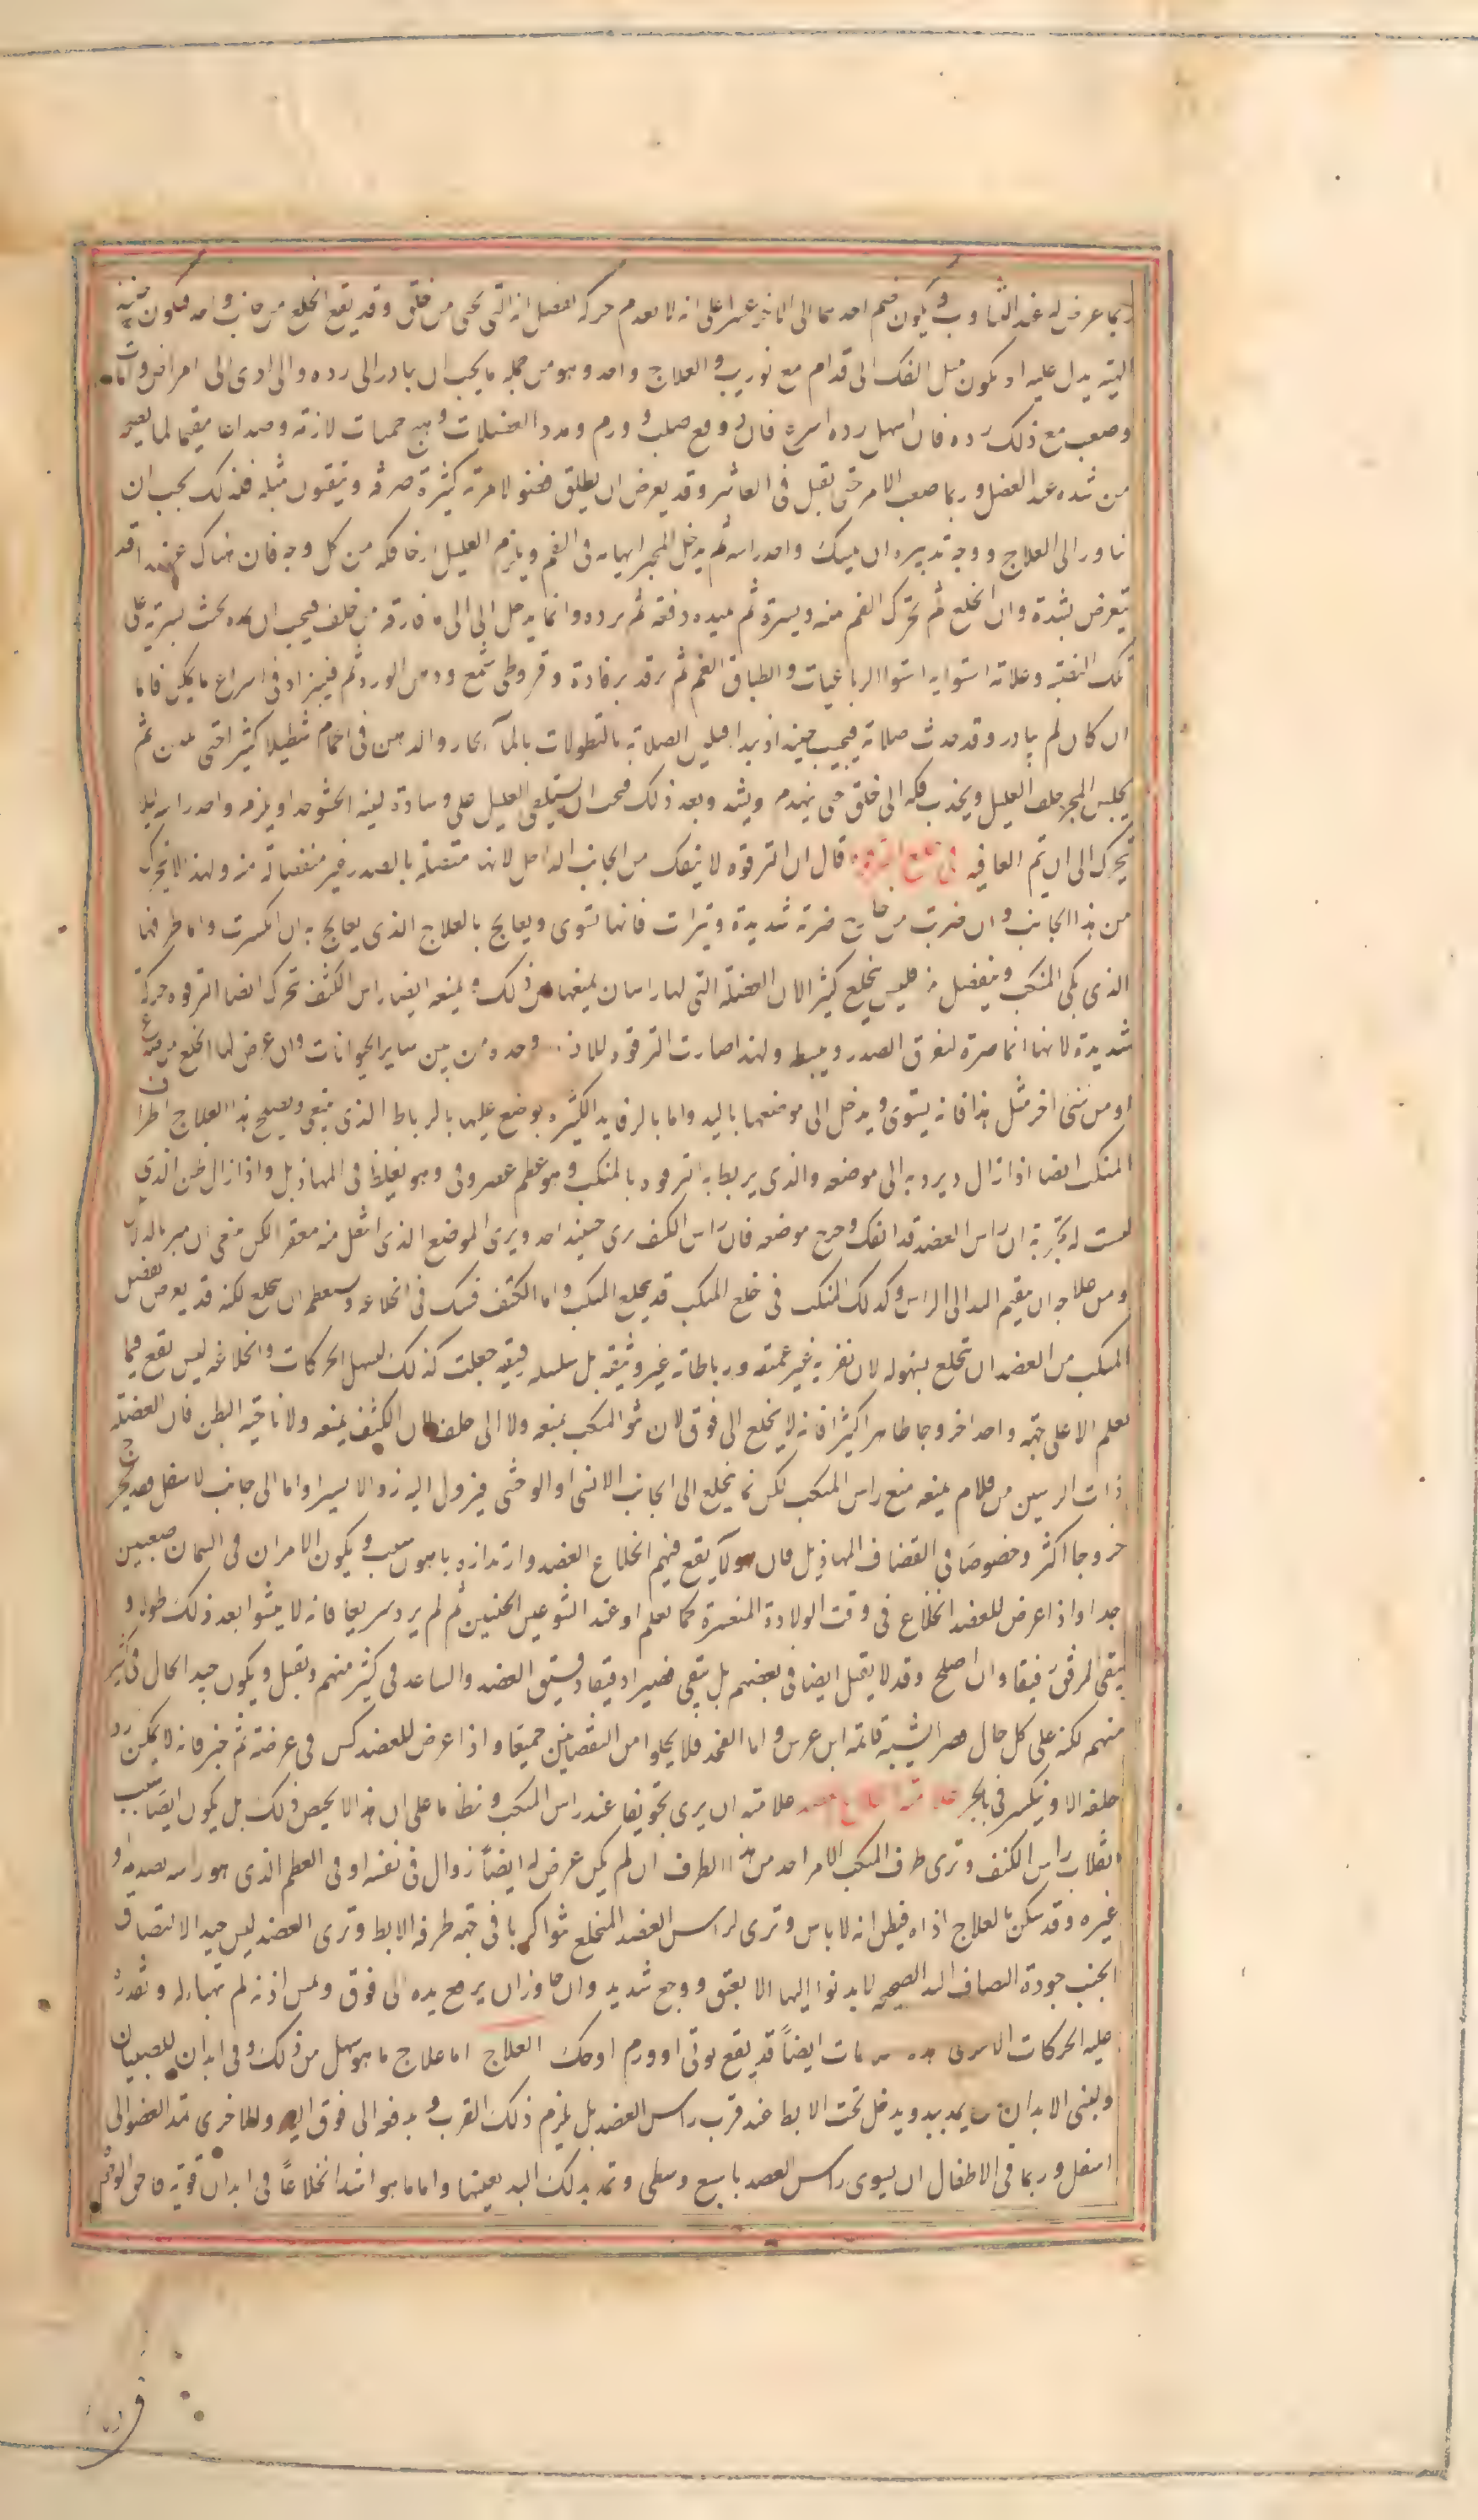 ربما عرض له عند التثاوب ويكون ضم احدهما الى الاخر عسرا على انه لا يعدم حركة لعضل انه التى تجى من خلف وقد يقع الخلع من جانب واحد فيكون
الهيئة يدل عليه او يكون ميل الفك الى قدام مع توريب والعلاج واحد وهو من جملة ما يجب ان يبادر الى رده والى ادى الى امراض وآفات
وصعب مع ذلك رده فان اسهل رده اسرع فان دوفع صلب وورم ومدد العضلات وهيج حميات لازمة وصداعا مقيما لما يعير
من شده عند العضل وربما صعب الامر حتى يقبل فى العاشر وقد يعرض ان يطلق فضولا مرية كثيرة صرفه ويتقيون مثله فلذلك يجب ان
يباور الى العلاج ووجه تدبيره ان يمسك واحد راسه ثم يدخل المجبر ابهامه فى الفم ويلزم العليل ارخا فكه من كل وجه فان هناك قد
تعرض بشدة وان انخلع ثم تحرك الفم يمنه ويسرة ثم يمده دفعة ثم يرده وانما يدخل الى الى ما فارقه من خلف فيجب ان يمده بحيث يستويه على
تلك الثقبة وعلامة استوايه استوا الرباعيات وانطباق الفم ثم يرفد برفادة وقيروطى شمع ودهن الورد ثم فيبرا فى اسراع ما يمكن فاما
ان كان لم يبادر وقد حدث صلابة فيجب حينئذ ان يبدا فيلين الصلابة بالنطولات بالمآ الحار والدهن فى الحمام تنطيلا كثيرا حتى يلين ثم
يجلس المجبر خلف العليل ويجذب فكه الى خلف حتى يندم ويشد وبعد ذلك فيجب ان يستلقى العليل على وسادة لينه الحشو جدا ويلزمه واحد راسه ليلا
يتحرك الى ان يتم العافيه فى خلع الترقوة قال ان الترقوه لا ينفك من الجانب الداخل لانها متصلة بالصدر غير منفصلة منه ولهذا لا يتحرك
من هذا الجانب وان ضربت من خارج ضربة شديدة وتبرات فانها تسوى ويعالج بالعلاج الذى يعالج به ان انكسرت واما طرفها
الذى يلى المنكب وينفصل منه فليس ينخلع كثيرا لان العضلة التى لها راسان يمنعها من ذلك ويمنعه ايضا راس الكتف تحرك ايضا الترقوه حركة
شديدة لانها انما صيرت لتفرق الصدر ويبسطه ولهذا صارت الترقوه للانسان وحده من بين ساير الحيوانات وان عرض لها الخلع من ضربة
او من شى اخر مثل هذا فانه يسوى ويدخل الى موضعها باليد واما بالرفايد الكثيره يوضع عليها بالرباط الذى ينبغى ويصلح هذا العلاج اطراف
المنكب ايضا اذا زال ويرد به الى موضعه والذى يربط به الترقوه بالمنكب هو عظم غضروفى وهو يغلظ فى المهازيل واذا زال ظن الذى
ليست له تجربة ان راس العضد قد انفك وخرج موضعه فان راس الكتف يرى حينئذ احد ويرى الموضع الذى انتقل منه مقعر لكن ينبغى ان يميز بالدلايل
ومن علاجه ان يقيم اليد الى الراس وكذلك المنكب فى خلع المنكب قد يخلع المنكب واما الكتف فشك فى انخلاعه ويستعظم ان ينخلع لكنه قد يعرض لمفصل
المنكب من العضد ان ينخلع بسهوله لان نقرته غير عميقه ورباطاته غير وثيقة بل سلسله رقيقه جعلت كذلك لتسهل الحركات وانخلاعه ليس تقع فيما
نعلم الا على جهة واحدة خروجا ظاهرا كثيرا فانه لا ينخلع الى فوق لان نتو المنكب يمنعه ولا الى خلف لان الكتف يمنعه ولا ناحية البطن فان العضلة
ذات الراسين من قدام يمنعه منع راس المنكب لكن انما ينخلع الى الجانب الانسى او الوحشى فيزول اليه زوالا يسيرا واما الى جانب الاسفل فقد يخرج
خروجا اكثر وخصوصا فى القضاف المهازيل فان هولآ يقع فيهم انخلاع العضد وارتداده باهون سبب ويكون الامران فى السمان صعبين
جدا واذا عرض للعضد انخلاع فى وقت الولادة المتعسرة كما نعلم او عند التوعيس الجنين ثم لم يرد سريعا فانه لا ينشوا بعد ذلك طوله و
يبقى المرفق رقيقا وان اصلح وقد لا يقبل ايضا فى بعضهم بل يبقى قصيرا دقيقا ودقيق العضد والساعد فى كثير منهم ويقبل ويكون جيد الحال فى اكثر
منهم لكنه على كل حال قصير الشبيه قايمه ابن عرس واما الفخذ فلا يخلوا من النقصانين جميعا واذا عرض للعضد كسر فى عرضة ثم جبر فانه لا يمكن رد
خلعه الا وينكسر فى الجبر علامة انخلاع العضد علامته ان يرى تجويفا عند راس المنكب ونظاما على ان هذا لا يخص ذلك بل يكون ايضا بسبب
انقلاب راس الكتف وترى طرف المنكب الامر احد من هذا الطرف ان لم يكن عرض له ايضاً زوال فى نفسه او فى العظم الذى هو راسه بصدمة او
غيره وقد يسكن بالعلاج اذاه فيظن انه لا باس وترى لراس العضد المنخلع نتوا كريا فى جهة طرفه الابط وترى العضد ليس جيد الالتصاق
بالجنب جودة التصاق اليد الصحيحة لا يدنوا اليها الا بعنف ووجع شديد وان حاوز ان يرفع يده الى فوق ولمس اذنه لم يتهيا له وتعذر
عليه الحركات الاخرى هذه علامات ايضاً قد يقع لوثى او ورم او هتك العلاج اما علاج ما هو سهل من ذلك وفى ابدان الصبيان
ولينى الابدان يمد بيد ويدخل تحت الابط عند قرب راس العضد بل يلزم ذلك القرب ويدفعه الى فوق اليد والاخرى تمد العضو الى
اسفل وربما فى الاطفال ان يسوى راس العضد باصبع وسطى وتمد بذلك اليد بعينها واما ما هو اشد انخلاعاً فى ابدان قوية فاحق الوجوه